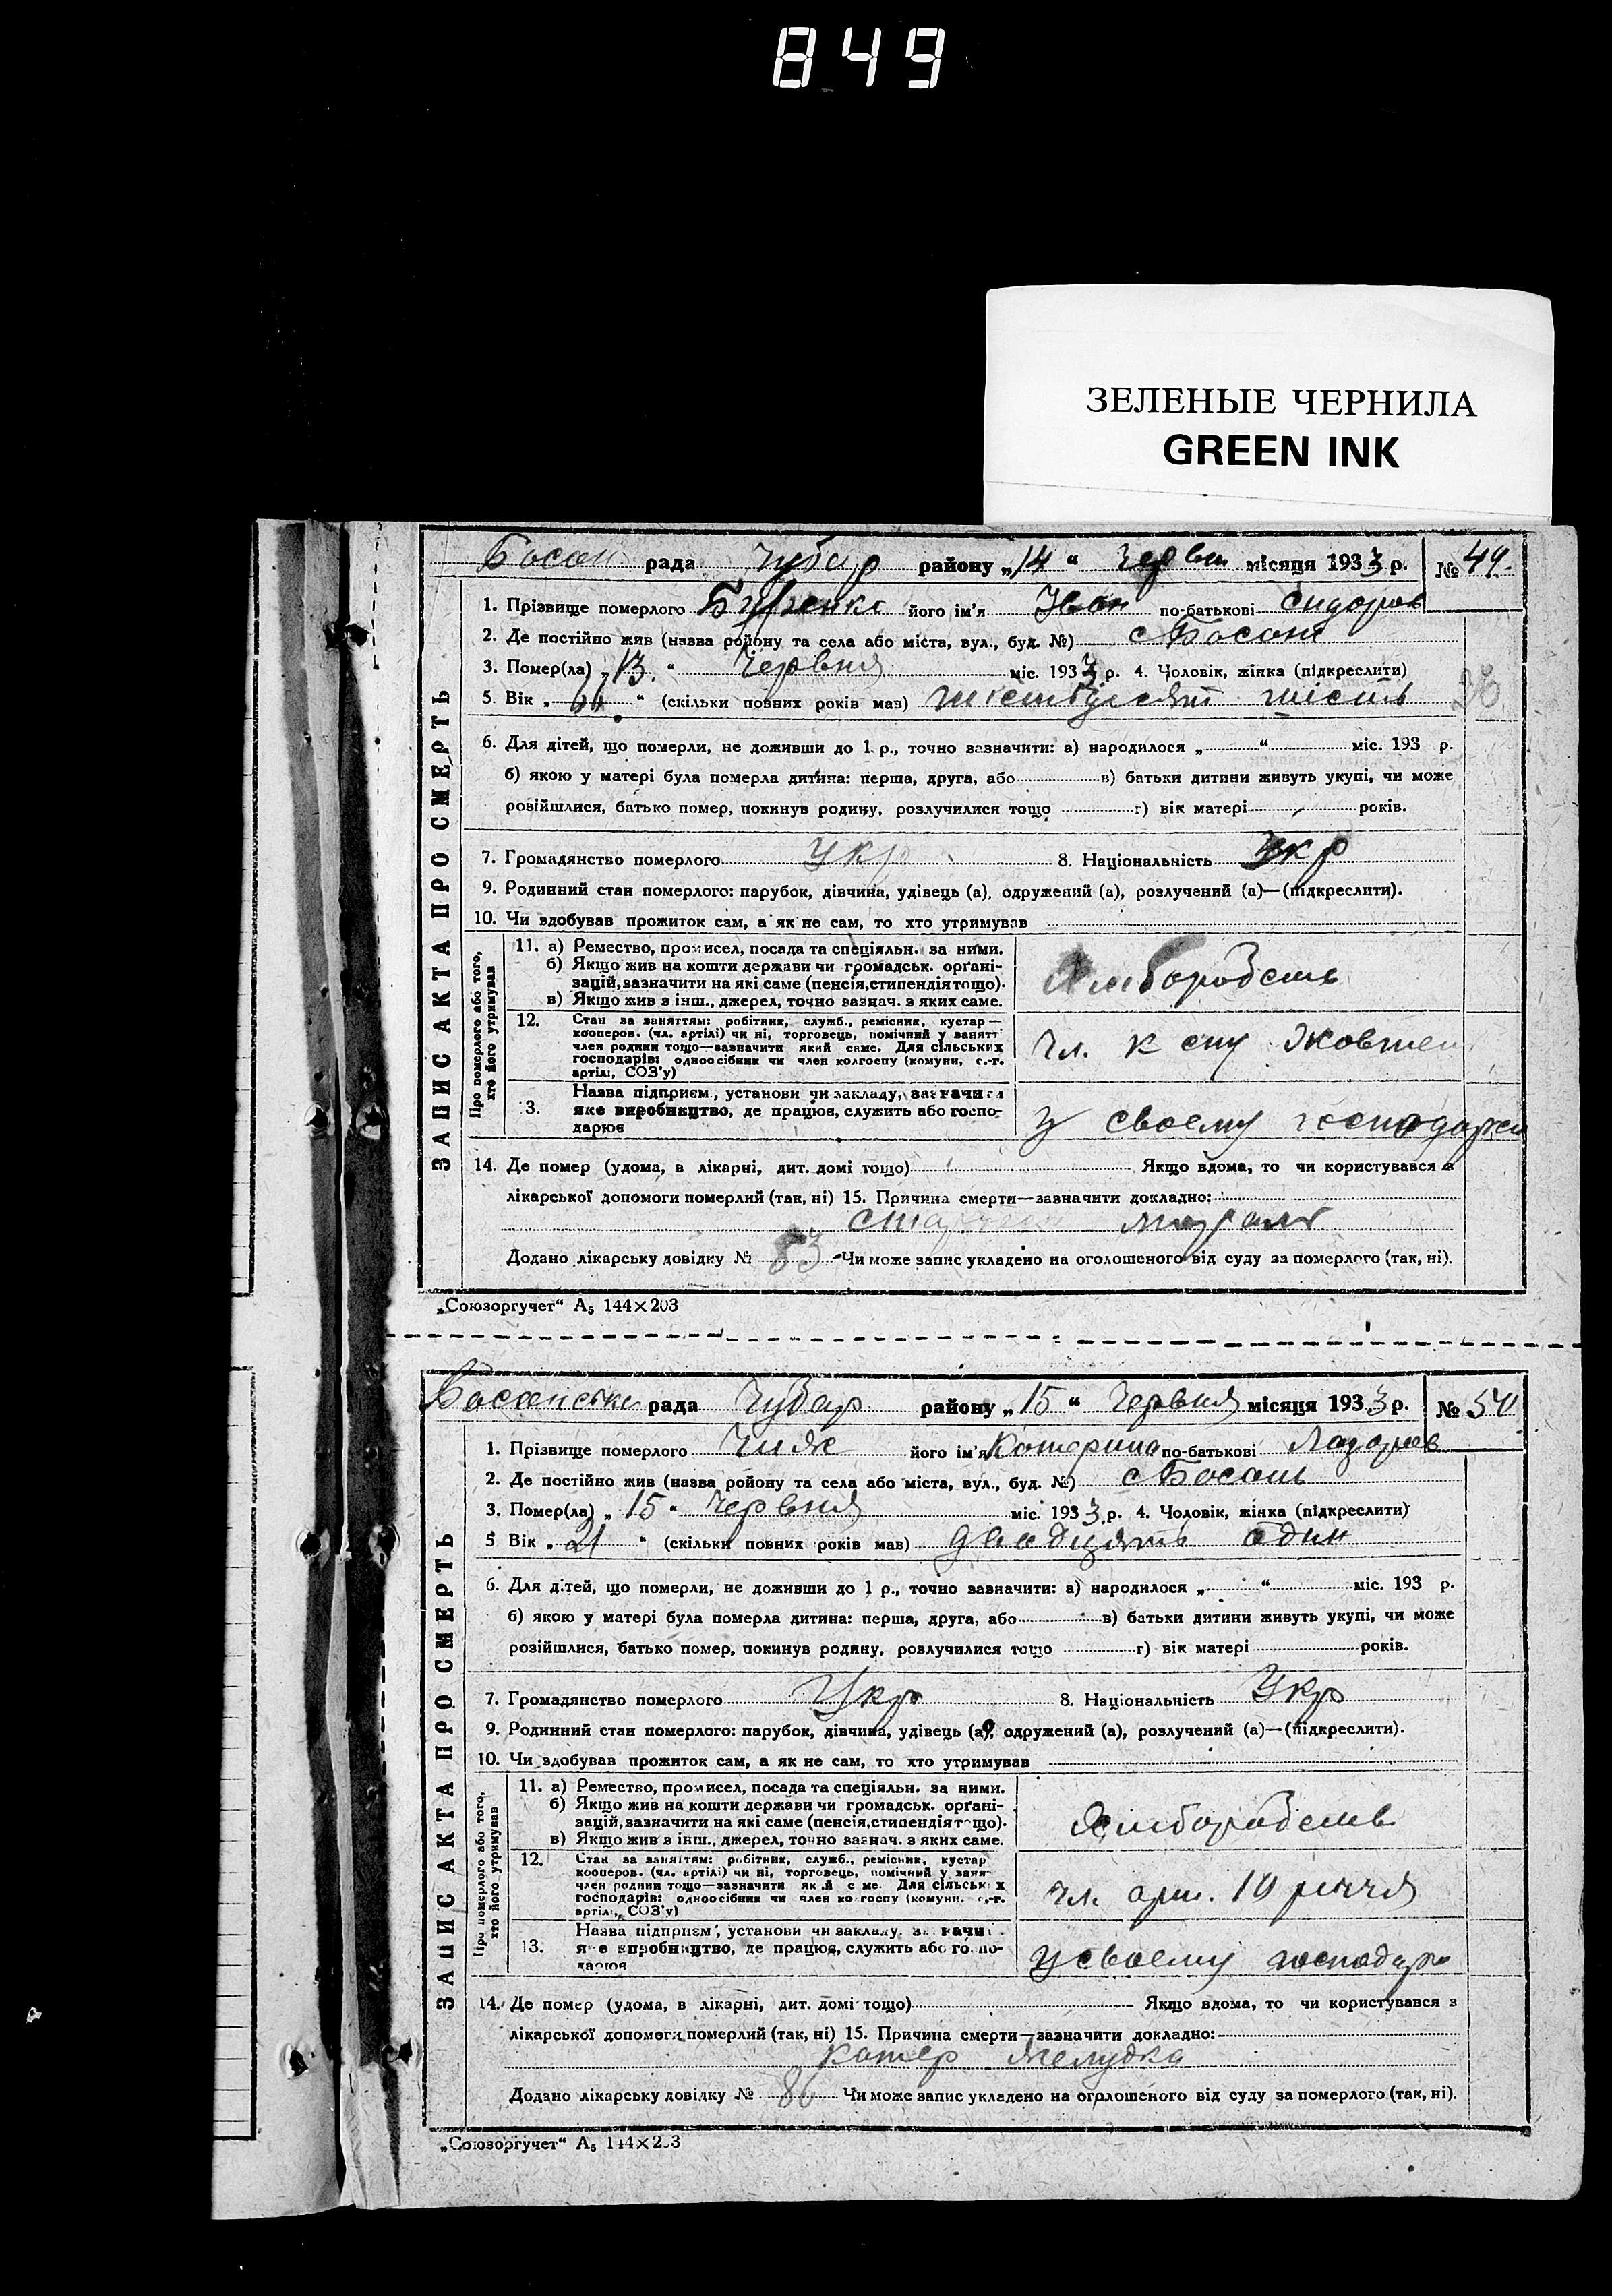 849
ЗЕЛЕНЫЕ ЧЕРНИЛА
GREEN INK
Босан рада Чубар району „14“ Червн місяця 1933 р. № 49.
ЗАПИС АКТА ПРО СМЕРТЬ
1. Прізвище померлого його ім'я Іван по-батькові Сидоров
2. Де постійно жив (назва ройону та села або міста, вул., буд. №) с Босань
3. Помер(ла) „13. “ Червня міс. 1933 р. 4. Чоловік, жінка (підкреслити)
5. Вік „ 66. “ (скільки повних років мав) шістьдесят шість
6. Для дітей, що померли, не доживши до 1 р., точно зазначити: а) народилося „ “ міс. 193 р.
б) якою у матері була померла дитина: перша, друга, або в) батьки дитини живуть укупі, чи може
розійшлися, батько помер, покинув родину, розлучилися тощо г) вік матері років.
7. Громадянство померлого укр 8. Національність укр
9. Родинний стан померлого: парубок, дівчина, удівець (а), одружений (а), розлучений (а)—(підкреслити).
10. Чи здобував прожиток сам, а як не сам, то хто утримував
Про померлого або того, хто його утримував
11. а) Ремество, промисел, посада та спеціяльн. за ними.
б) Якщо жив на кошти держави чи громадськ. орґані-
зацій, зазначити на які саме (пенсія, стипендія тощо).
в) Якщо жив з інш., джерел, точно зазнач. з яких саме.
Хліборобсть
12. Стан за заняттям: робітник, служб., ремісник, кустар—
кооперов. (чл. артілі) чи ні, торговець, помічний у занятт
член родини тощо—зазначити який саме. Для сільських
господарів: одноосібник чи член колгоспу (комуни, с.-г.
артілі, СОЗ'у)
Чл. к спу Жовтен
3. Назва підприєм., установи чи закладу, зазначити
яке виробництво, де працює, служить або госпо-
дарює
У своему господарс
14. Де помер (удома, в лікарні, дит. домі тощо) Якщо вдома, то чи користувався з
лікарської допомоги померлий (так, ні) 15. Причина смерти—зазначити докладно:
Додано лікарську довідку № 83 Чи може запис укладено на оголошеного від суду за померлого (так, ні).
„Союзоргучет“ А5 144×203
Босанська рада Чубар району „15“ Червня місяця 1933 р. № 50
ЗАПИС АКТА ПРО СМЕРТЬ
1. Прізвище померлого Чиж його ім'я Катерина по-батькові Лазорев
2. Де постійно жив (назва ройону та села або міста, вул., буд. №) с Босань
3. Помер(ла) „ 15 “ Червня міс. 1933 р. 4. Чоловік, жінка (підкреслити)
5 Вік „ 21 “ (скільки повних років мав) двадцять один
6. Для дітей, що померли, не доживши до 1 р., точно зазначити: а) народилося „ “ міс. 193 р.
б) якою у матері була померла дитина: перша, друга, або в) батьки дитини живуть укупі, чи може
розійшлися, батько помер, покинув родину, розлучилися тощо г) вік матері років.
7. Громадянство померлого Укр 8. Національність Укр
9. Родинний стан померлого: парубок, дівчина, удівець (а), одружений (а), розлучений (а)—(підкреслити).
10. Чи здобував прожиток сам, а як не сам, то хто утримував
Про померлого або того, хто його утримував
11. а) Ремество, промисел, посада та спеціяльн. за ними.
б) Якщо жив на кошти держави чи громадськ. орґані-
зацій, зазначити на які саме (пенсія, стипендія тощо).
в) Якщо жив з інш., джерел, точно зазнач. з яких саме.
Хліборобсть
12. Стан за заняттям: робітник, служб., ремісник, кустар
кооперов. (чл. артілі) чи ні, торговець, помічний у заня
член родини тощо—зазначити який саме. Для сільських
господарів: одноосібник чи член колгоспу (комуни, с.-г.
артілі, СОЗ'у)
чл. арт. 10 річчя
13. Назва підприєм., установи чи закладу, зазначи
яке виробництво, де працює, служить або госпо-
дарює
у своему господар
14. Де помер (удома, в лікарні, дит. домі тощо) Якщо вдома, то чи користувався з
лікарської допомоги померлий (так, ні) 15. Причина смерти—зазначити докладно:
Катар желудка
Додано лікарську довідку № 86 Чи може запис укладено на оголошеного від суду за померлого (так, ні).
„Союзоргучет“ А5 144×203